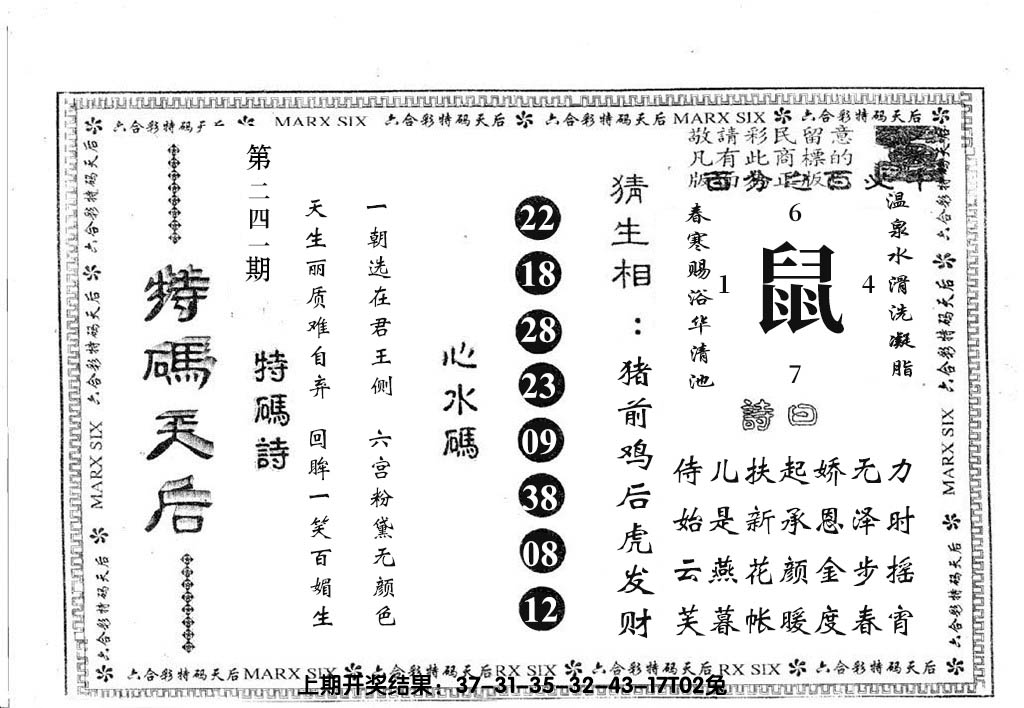 六合彩特码天后 MARX SIX 六合彩特码天后 六合彩特码天后 MARX SIX 六合彩特码天后
敬請彩民留意
凡有此商標的
版面為正版
第二四一期
特碼天后
特碼詩
一朝选在君王侧 六宫粉黛无颜色
天生丽质难自弃 回眸一笑百媚生
心水碼
22
18
28
23
09
38
08
12
猜生相：猪前鸡后虎发财
温泉水滑洗凝脂
春寒赐浴华清池
6
1
鼠
4
7
詩曰
侍儿扶起娇无力
始是新承恩泽时
云燕花颜金步摇
芙暮帐暖度春宵
六合彩特码天后
MARX SIX
六合彩特码天后
六合彩特码天后
六合彩特码天后
MARX SIX
六合彩特码天后
六合彩特码天后
六合彩特码天后 MARX SIX 六合彩特码天后RX SIX 六合彩特码天后 RX SIX 六合彩特码天后
上期开奖结果：37-31-35-32-43-17T02兔